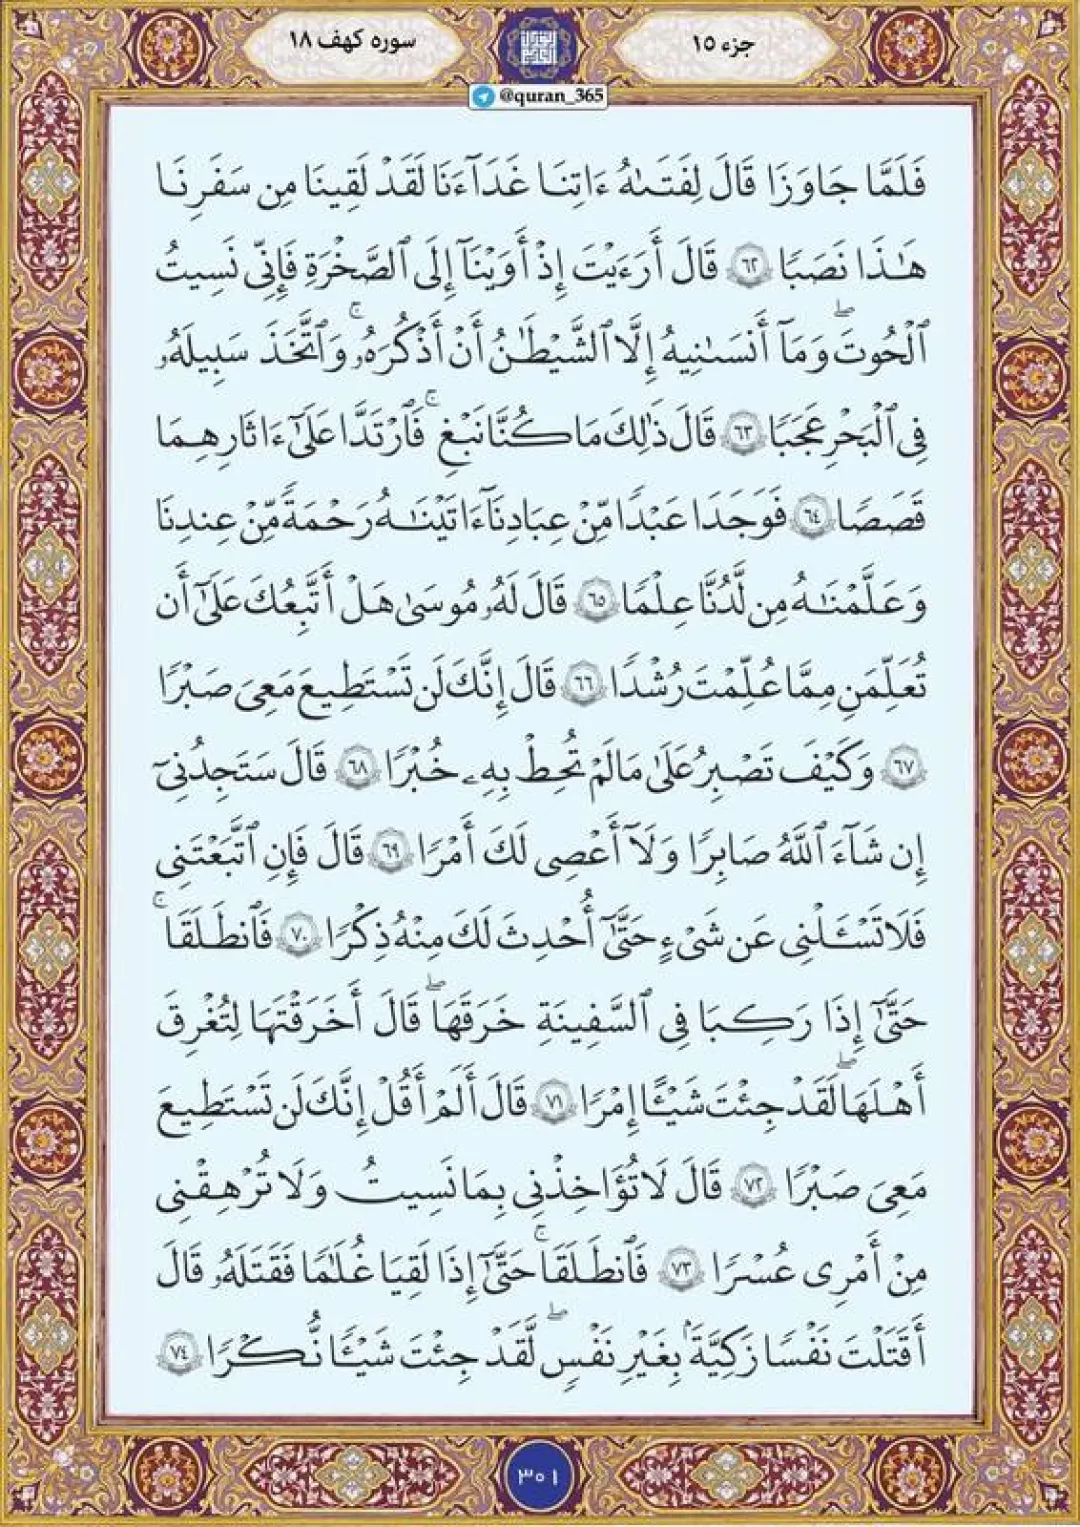 جزء ۱۵
سوره کهف ۱۸
@quran_365
فَلَمَّا جَاوَزَا قَالَ لِفَتَىٰهُ ءَاتِنَا غَدَآءَنَا لَقَدْ لَقِينَا مِن سَفَرِنَا
هَـٰذَا نَصَبًا ٦٢ قَالَ أَرَءَيْتَ إِذْ أَوَيْنَآ إِلَى ٱلصَّخْرَةِ فَإِنِّى نَسِيتُ
ٱلْحُوتَ ۖ وَمَآ أَنسَىٰنِيهُ إِلَّا ٱلشَّيْطَـٰنُ أَنْ أَذْكُرَهُۥ ۚ وَٱتَّخَذَ سَبِيلَهُۥ
فِى ٱلْبَحْرِ عَجَبًا ٦٣ قَالَ ذَٰلِكَ مَا كُنَّا نَبْغِ ۚ فَٱرْتَدَّا عَلَىٰٓ ءَاثَارِهِمَا
قَصَصًا ٦٤ فَوَجَدَا عَبْدًا مِّنْ عِبَادِنَآ ءَاتَيْنَـٰهُ رَحْمَةً مِّنْ عِندِنَا
وَعَلَّمْنَـٰهُ مِن لَّدُنَّا عِلْمًا ٦٥ قَالَ لَهُۥ مُوسَىٰ هَلْ أَتَّبِعُكَ عَلَىٰٓ أَن
تُعَلِّمَنِ مِمَّا عُلِّمْتَ رُشْدًا ٦٦ قَالَ إِنَّكَ لَن تَسْتَطِيعَ مَعِىَ صَبْرًا
٦٧ وَكَيْفَ تَصْبِرُ عَلَىٰ مَا لَمْ تُحِطْ بِهِۦ خُبْرًا ٦٨ قَالَ سَتَجِدُنِىٓ
إِن شَآءَ ٱللَّهُ صَابِرًا وَلَآ أَعْصِى لَكَ أَمْرًا ٦٩ قَالَ فَإِنِ ٱتَّبَعْتَنِى
فَلَا تَسْـَٔلْنِى عَن شَىْءٍ حَتَّىٰٓ أُحْدِثَ لَكَ مِنْهُ ذِكْرًا ٧٠ فَٱنطَلَقَا ۚ
حَتَّىٰٓ إِذَا رَكِبَا فِى ٱلسَّفِينَةِ خَرَقَهَا ۖ قَالَ أَخَرَقْتَهَا لِتُغْرِقَ
أَهْلَهَا ۖ لَقَدْ جِئْتَ شَيْـًٔا إِمْرًا ٧١ قَالَ أَلَمْ أَقُلْ إِنَّكَ لَن تَسْتَطِيعَ
مَعِىَ صَبْرًا ٧٢ قَالَ لَا تُؤَاخِذْنِى بِمَا نَسِيتُ وَلَا تُرْهِقْنِى
مِنْ أَمْرِى عُسْرًا ٧٣ فَٱنطَلَقَا ۚ حَتَّىٰٓ إِذَا لَقِيَا غُلَـٰمًا فَقَتَلَهُۥ قَالَ
أَقَتَلْتَ نَفْسًا زَكِيَّةًۢ بِغَيْرِ نَفْسٍ ۖ لَّقَدْ جِئْتَ شَيْـًٔا نُّكْرًا ٧٤
٣٠١